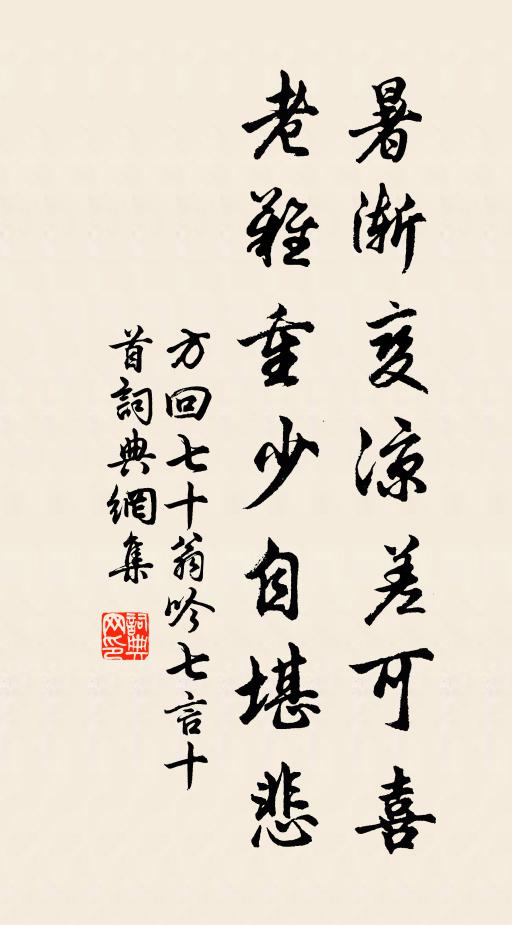 暑漸變涼差可喜
老難重少自堪悲
方回七十翁吟七言十
首詞典網集
詞典网印